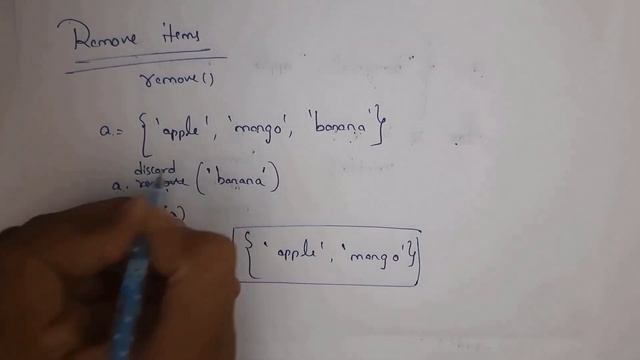 Remove items
remove()
a = { 'apple', 'mango', 'banana' }
discard
a. remove ('banana')
{ 'apple', 'mango' }